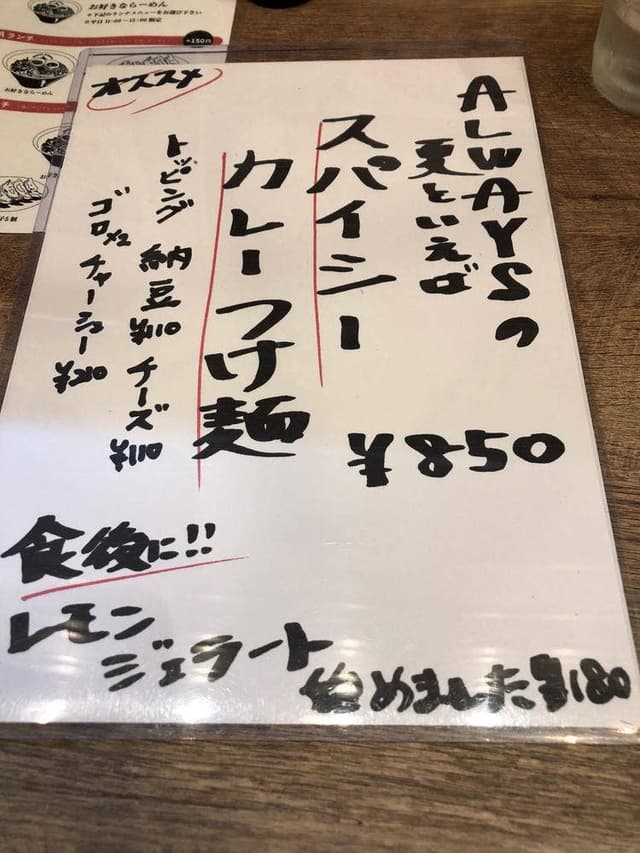 ALWAYSの
夏といえば
スパイシー
カレーつけ麺
¥850
オススメ
トッピング 納豆¥110 チーズ¥110
ゴロメ2チャーシュー¥220
食後に!!
レモン
ジェラート
始めました¥180
お好きならーめん
+150円
Aランチ
お好きならーめん